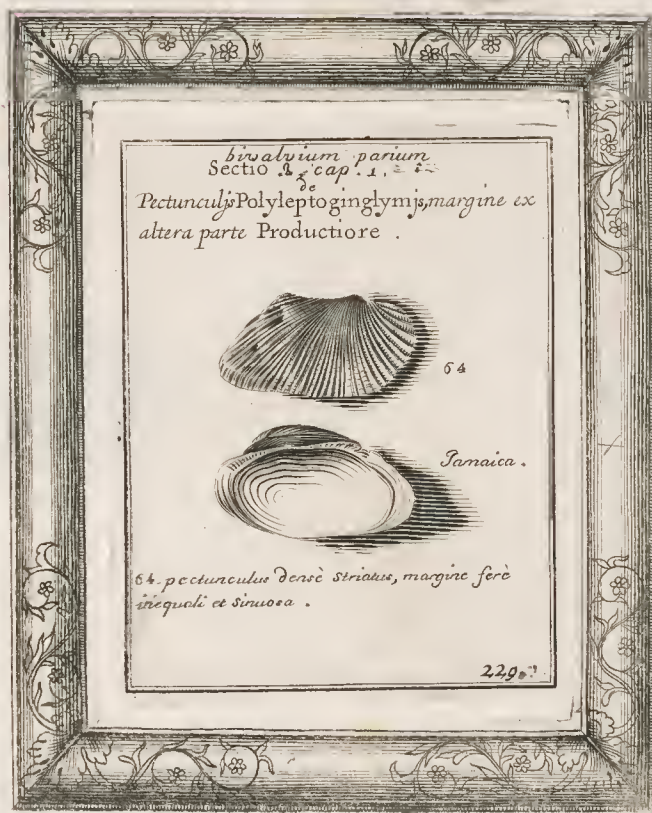 bivalvium parium
Sectio 2. cap. 1.
de
Pectunculjs Polyleptoginglymjs, margine ex
altera parte Productiore .
64
Jamaica .
64. pectunculus densè striatus, margine ferè
inequali et sinuosa .
229.